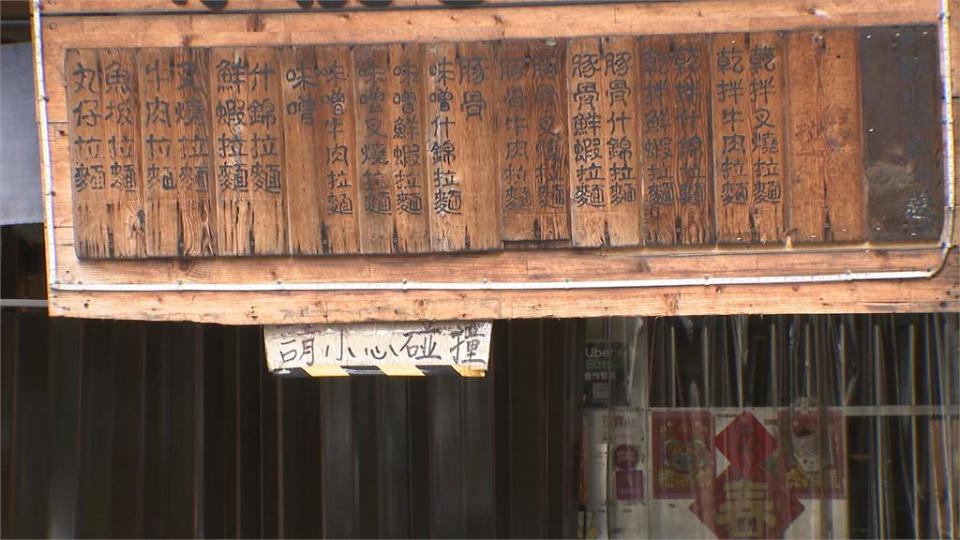 丸仔拉麵
魚板拉麵
牛肉拉麵
叉燒拉麵
鮮蝦拉麵
什錦拉麵
味噌
味噌牛肉拉麵
味噌叉燒拉麵
味噌鮮蝦拉麵
味噌什錦拉麵
豚骨
豚骨牛肉拉麵
豚骨叉燒拉麵
豚骨鮮蝦拉麵
豚骨什錦拉麵
乾拌鮮蝦拉麵
乾拌什錦拉麵
乾拌牛肉拉麵
乾拌叉燒拉麵
請小心碰撞
Uber
Eats
春